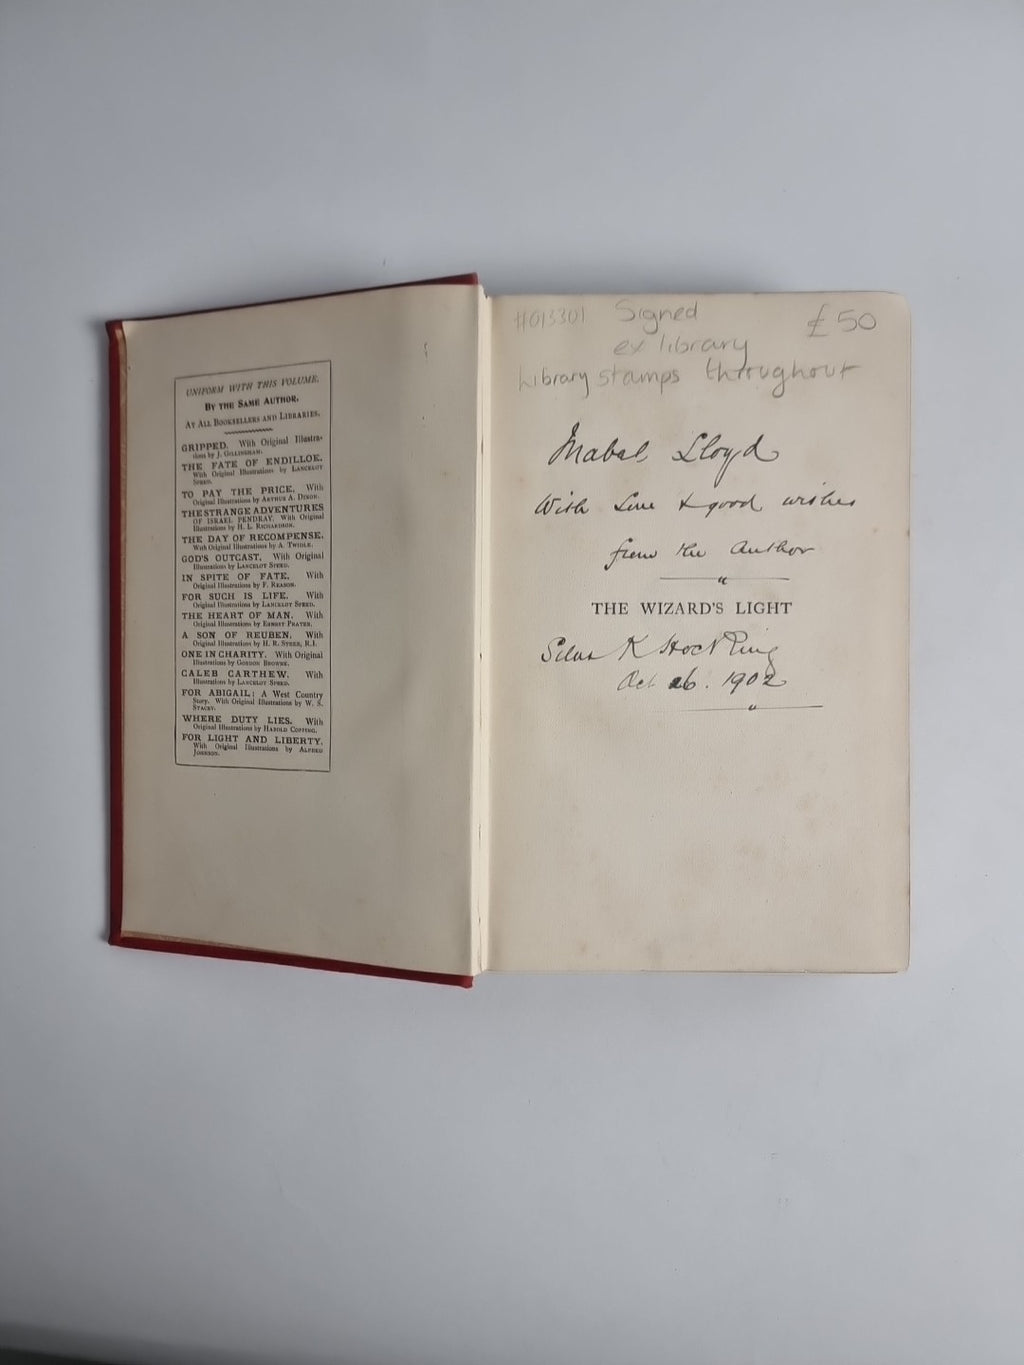 UNIFORM WITH THIS VOLUME.
BY THE SAME AUTHOR.
AT ALL BOOKSELLERS AND LIBRARIES.
GRIPPED. With Original Illustra-
tions by J. GULINGHAM.
THE FATE OF ENDILLOE.
With Original Illustrations by LANCELOT
SPEED.
TO PAY THE PRICE. With
Original Illustrations by ARTHUR A. DIXON.
THE STRANGE ADVENTURES
OF ISRAEL PENDRAY. With Original
Illustrations by H. L. RICHARDSON.
THE DAY OF RECOMPENSE.
With Original Illustrations by A. TWIDLE.
GOD'S OUTCAST. With Original
Illustrations by LANCELOT SPEED.
IN SPITE OF FATE. With
Original Illustrations by F. REASON.
FOR SUCH IS LIFE. With
Original Illustrations by LANCELOT SPEED.
THE HEART OF MAN. With
Original Illustrations by ERNEST PRATER.
A SON OF REUBEN. With
Original Illustrations by H. R. STEER, R.I.
ONE IN CHARITY. With Original
Illustrations by GORDON BROWNE.
CALEB CARTHEW. With
Illustrations by LANCELOT SPEED.
FOR ABIGAIL: A West Country
Story. With Original Illustrations by W. S.
STACEY.
WHERE DUTY LIES. With
Original Illustrations by HAROLD COPPING.
FOR LIGHT AND LIBERTY.
With Original Illustrations by ALFRED
JOHNSON.
#013301 Signed £50
ex library
Library stamps throughout
Mabel Lloyd
With Love & good wishes
from the Author
THE WIZARD'S LIGHT
Silas K Hocking
Oct 26. 1902